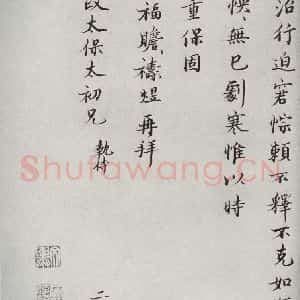 治行迫窘悰賴不釋不克如
無已劇寒惟以時
重保固
福瞻禱煜再拜
太保太初兄
執侍
Shufawang.CN